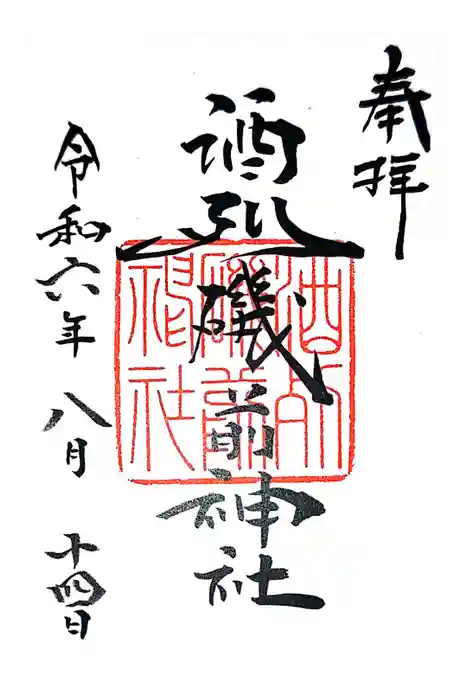 奉拝
酒列磯前神社
酒列
磯前
神社
令和六年 八月 十四日